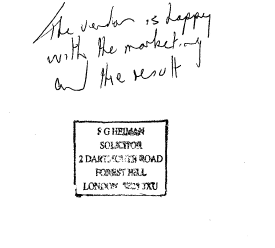 The vendor is happy
with the marketing
and the result
S G HEIMAN
SOLICITOR
2 DARTMOUTH ROAD
FOREST HILL
LONDON SE23